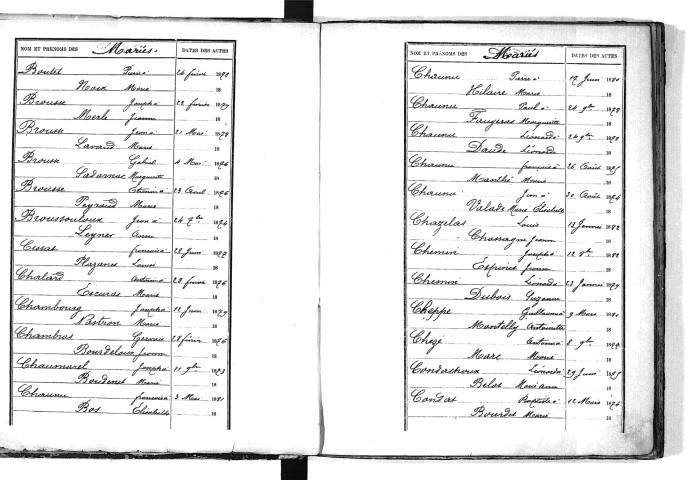 NOM ET PRÉNOMS DES Mariés. DATES DES ACTES
Boulet Pierre à 26 février 1873
Noix Marie 18
Brousse Joseph à 22 février 1879
Merle Jeanne 18
Brousse Jean à 21 Mars 1878
Lavaud Marie 18
Brousse Gabriel 4 Mars 1876
Ladarnac Marguerite 18
Brousse 23 Avril 1876
Peyraud Marie 18
Broussouloux Jean à 24 1874
Leyner Anne 18
Cessac François à 28 Juin 1872
Plazanet Louise 18
Chalard Antoine à 28 février 1876
Escuras Marie 18
Chambourg Joseph à 11 Juin 1879
Nastron Marie 18
Chambras 28 février 1876
Bourdeloux Jeanne 18
Chaumarel Joseph à 11 9bre 1873
Boudinet Marie 18
Chaunu François à 3 Mars 1881
Bos Elisabeth 18
NOM ET PRÉNOMS DES Mariés DATES DES ACTES
Chaunu Pierre à 17 Juin 1880
Hilaire Marie 18
Chaunu Paul à 26 9bre 1878
Faugeras Marguerite 18
Chaunu Léonard à 24 9bre 1880
Daude Léonarde 18
Chaunu François à 26 Août 1875
Manthé Marie 18
Chaunu Jean à 30 Août 1874
Valade Marie Elisabeth 18
Chazelas Louis 13 Janvier 1882
Chassagne Jeanne 18
Chemin Joseph à 12 8bre 1881
Espinet Jeanne 18
Chemin Léonard à 23 Janvier 1879
Dubois Suzanne 18
Cheppe Guillaume à 9 Mars 1880
Montelly Antoinette 18
Chèze Antoine à 8 9bre
Marc Marie 18
Condachoux Léonard à 29 Juin 1875
Belot Marianne 18
Condat Baptiste à 12 Mars 1874
Bourdet Marie 18